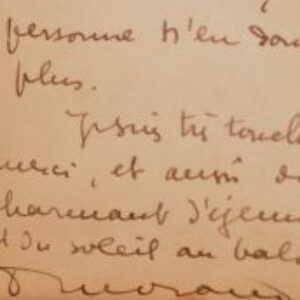 personne n'en don
plus.
Je suis très touch
merci, et aussi de
charmant déjeun
du soleil au balc